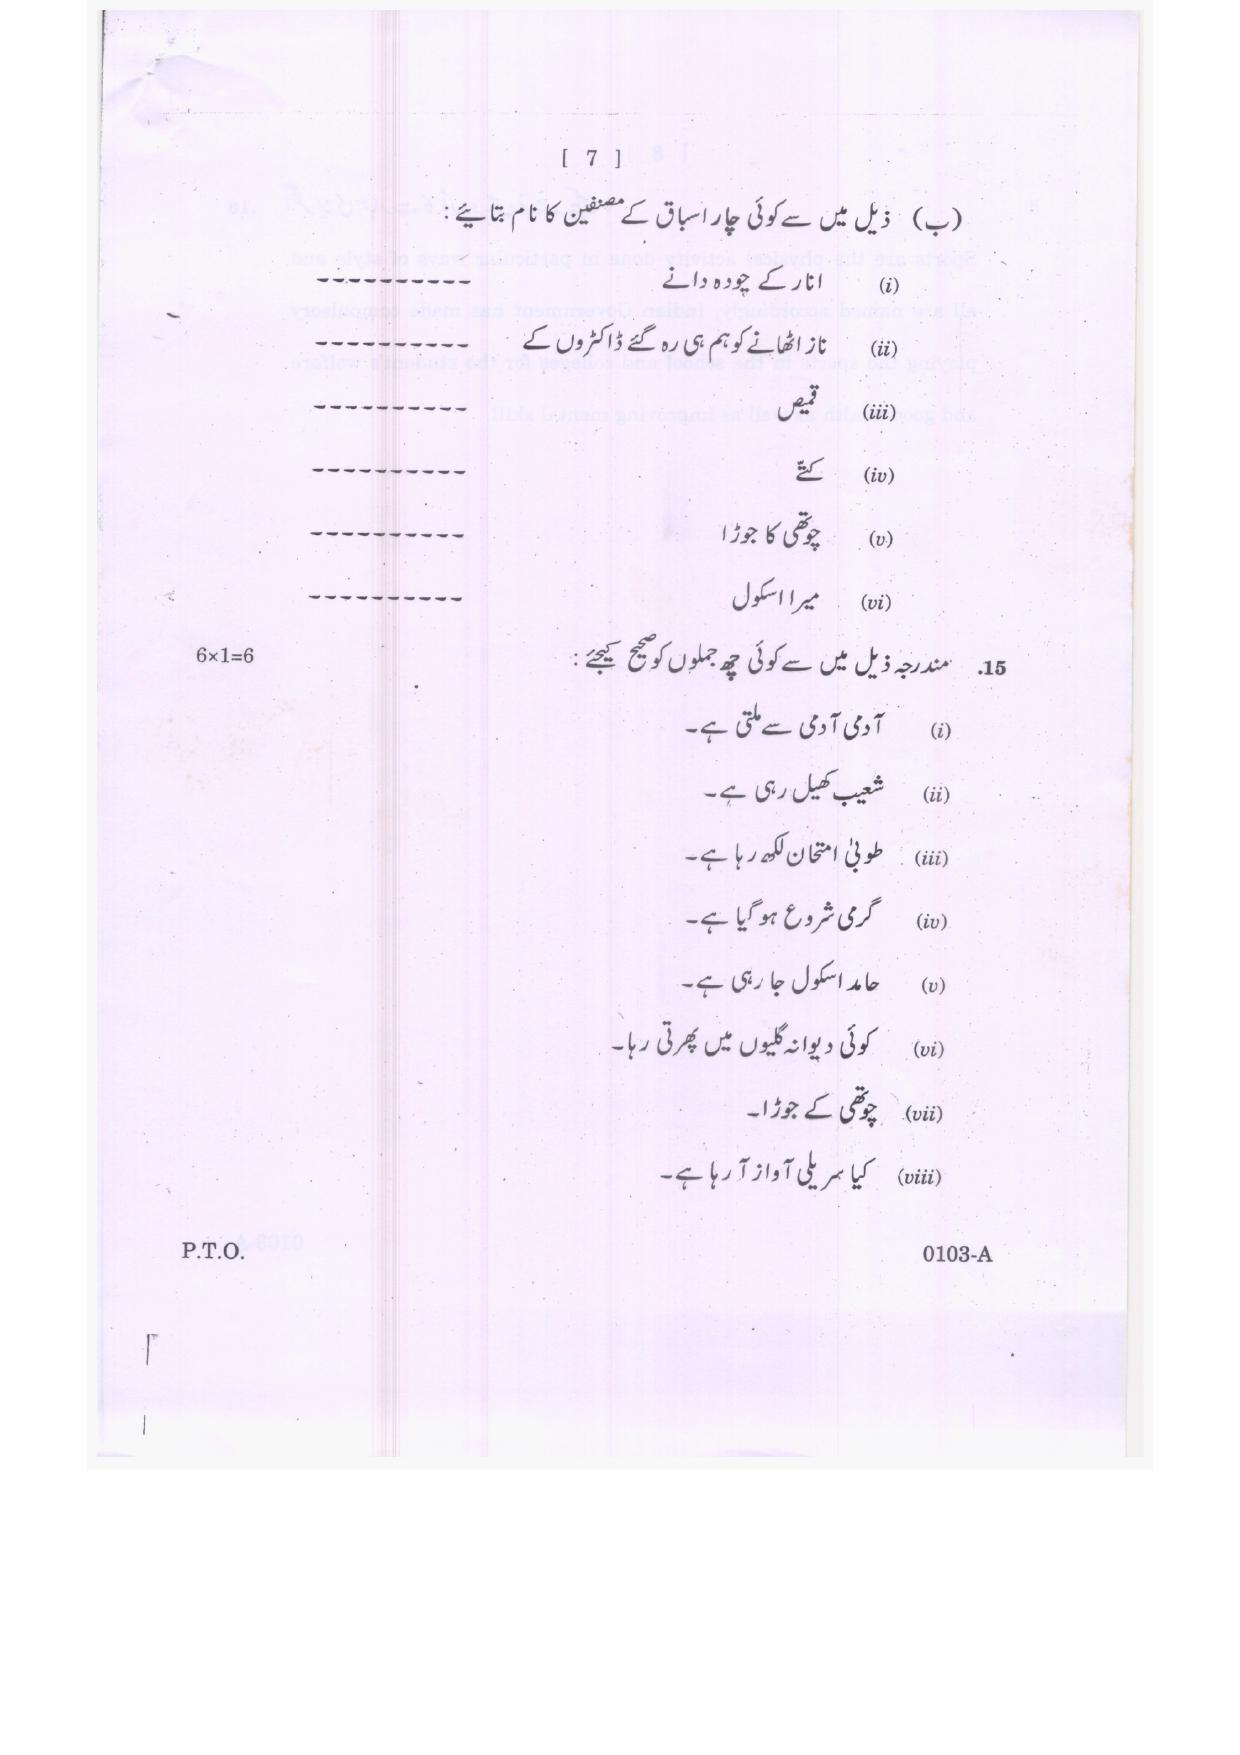 [ 7 ]
(ب) ذیل میں سے کوئی چار اسباق کے مصنفین کا نام بتائیے :
(i) انار کے چودہ دانے ----------
(ii) ناز اٹھانے کو ہم ہی رہ گئے ڈاکٹروں کے ----------
(iii) قمیص ----------
(iv) کتّے ----------
(v) چوتھی کا جوڑا ----------
(vi) میرا اسکول ----------
15. مندرجہ ذیل میں سے کوئی چھ جملوں کو صحیح کیجئے : 6×1=6
(i) آدمی آدمی سے ملتی ہے۔
(ii) شعیب کھیل رہی ہے۔
(iii) طوبیٰ امتحان لکھ رہا ہے۔
(iv) گرمی شروع ہو گیا ہے۔
(v) حامد اسکول جا رہی ہے۔
(vi) کوئی دیوانہ گلیوں میں پھرتی رہا۔
(vii) چوتھی کے جوڑا۔
(viii) کیا سریلی آواز آ رہا ہے۔
0103-A P.T.O.